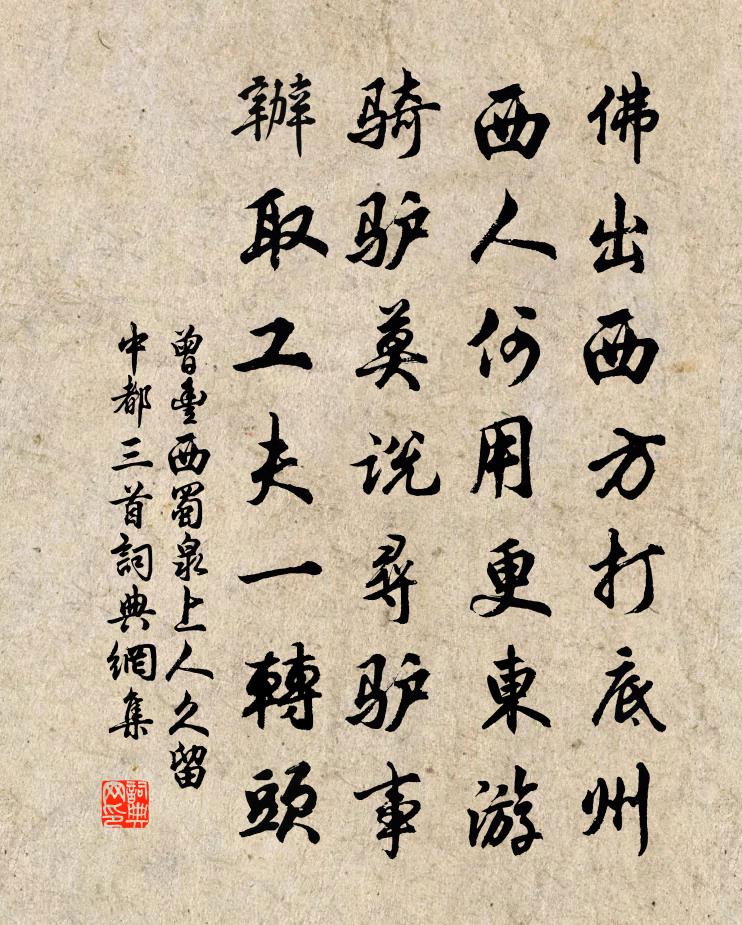 佛出西方打底州
西人何用更東游
骑驴莫说尋驴事
辦取工夫一轉頭
曾豐西蜀泉上人久留
中都三首詞典網集
詞典网印